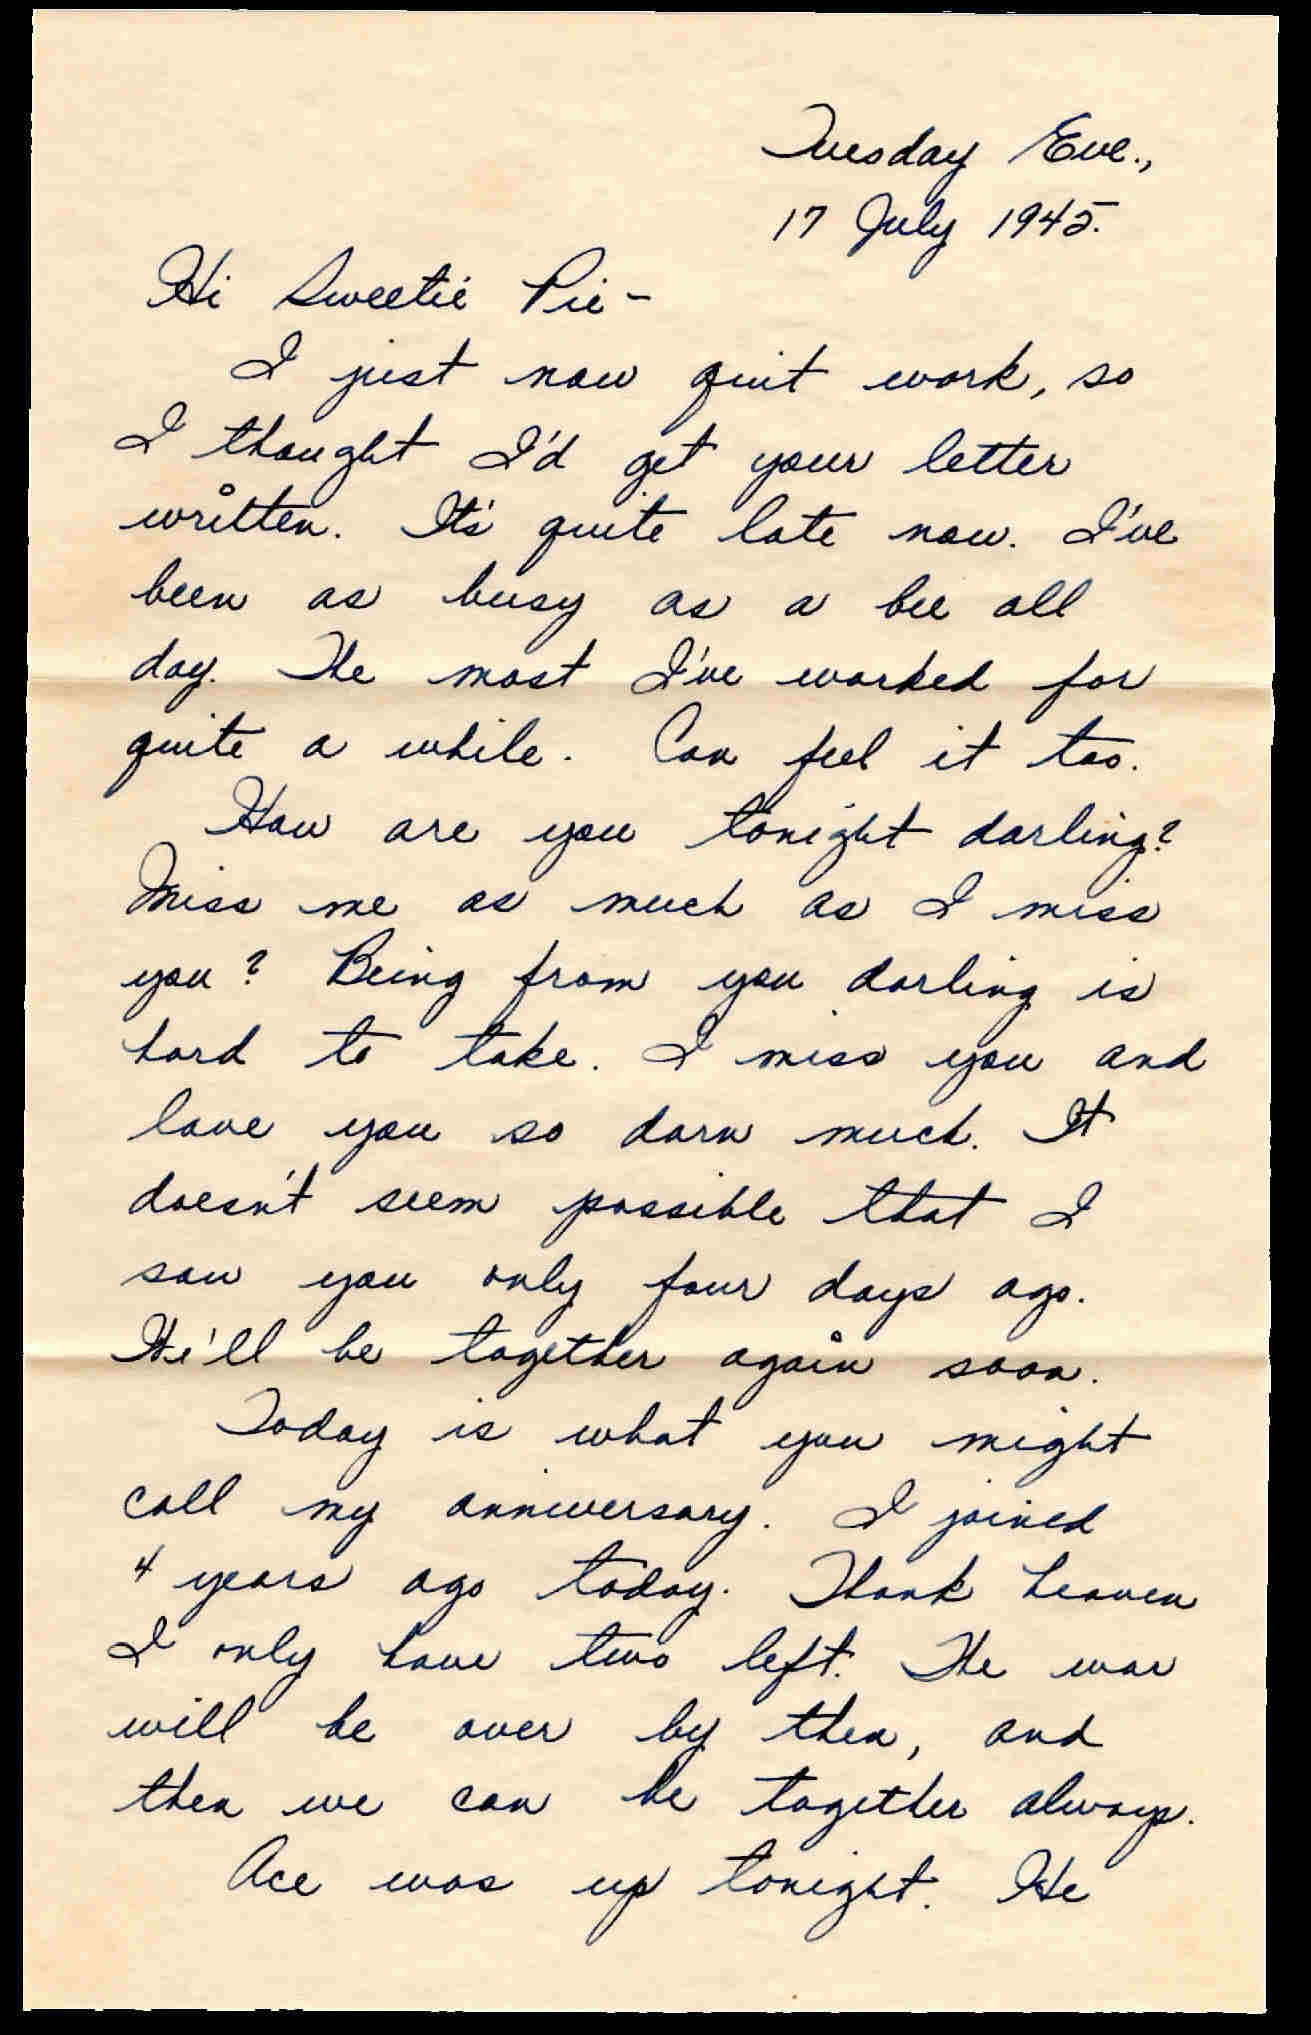 Tuesday Eve.,
17 July 1945.
Hi Sweetie Pie-
I just now quit work, so
I thought I'd get your letter
written. It's quite late now. I've
been as busy as a bee all
day. The most I've worked for
quite a while. Can feel it too.
How are you tonight darling?
Miss me as much as I miss
you? Being from you darling is
hard to take. I miss you and
love you so darn much. It
doesn't seem possible that I
saw you only four days ago.
We'll be together again soon.
Today is what you might
call my anniversary. I joined
4 years ago today. Thank heaven
I only have two left. The war
will be over by then, and
then we can be together always.
Ace was up tonight. He